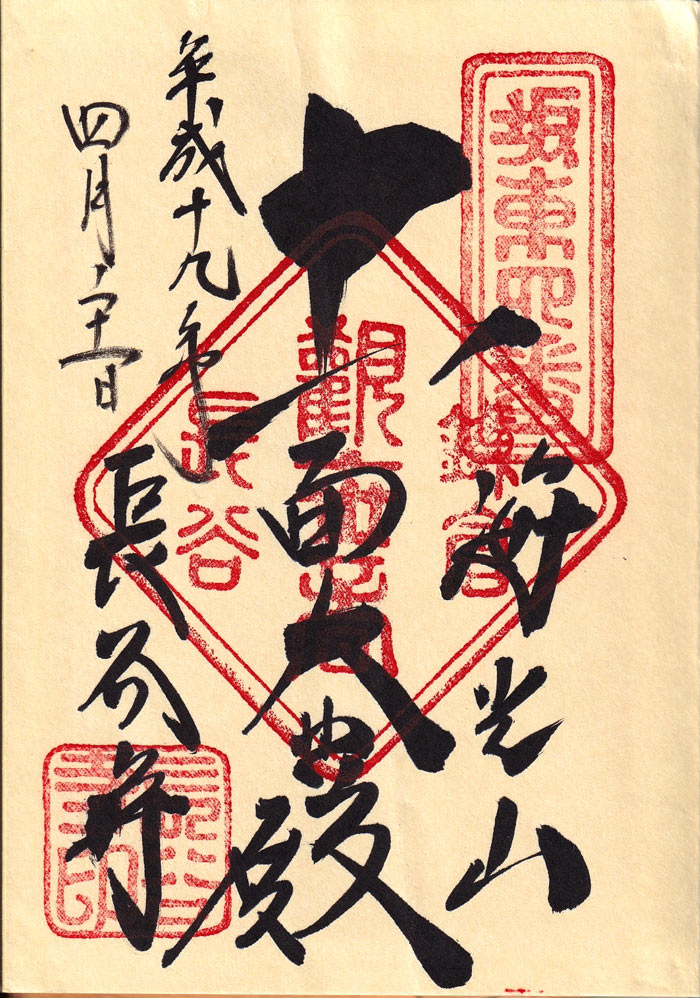 坂東四番
海光山
鎌倉
十一面大悲殿
觀世音
長谷
平成十九年
四月二十一日
長谷寺